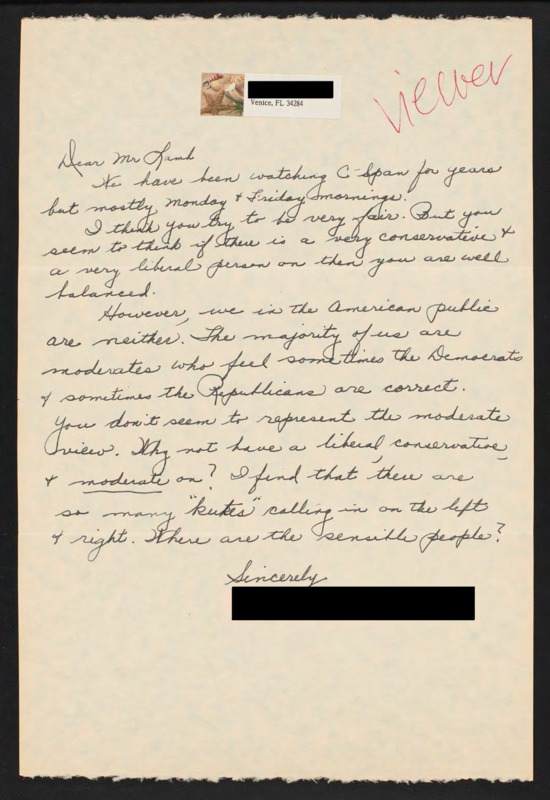 Venice, FL 34284
viewer
Dear Mr Lamb
We have been watching C-Span for years
but mostly Monday & Friday mornings.
I think you try to be very fair. But you
seem to think if there is a very conservative &
a very liberal person on then you are well
balanced.
However, we in the American public
are neither. The majority of us are
moderates who feel sometimes the Democrats
& somtimes the Republicans are correct.
You don't seem to represent the moderate
view. Why not have a liberal, conservative,
& moderate on? I find that there are
so many "kutes" calling in on the left
& right. Where are the sensible people?
Sincerely